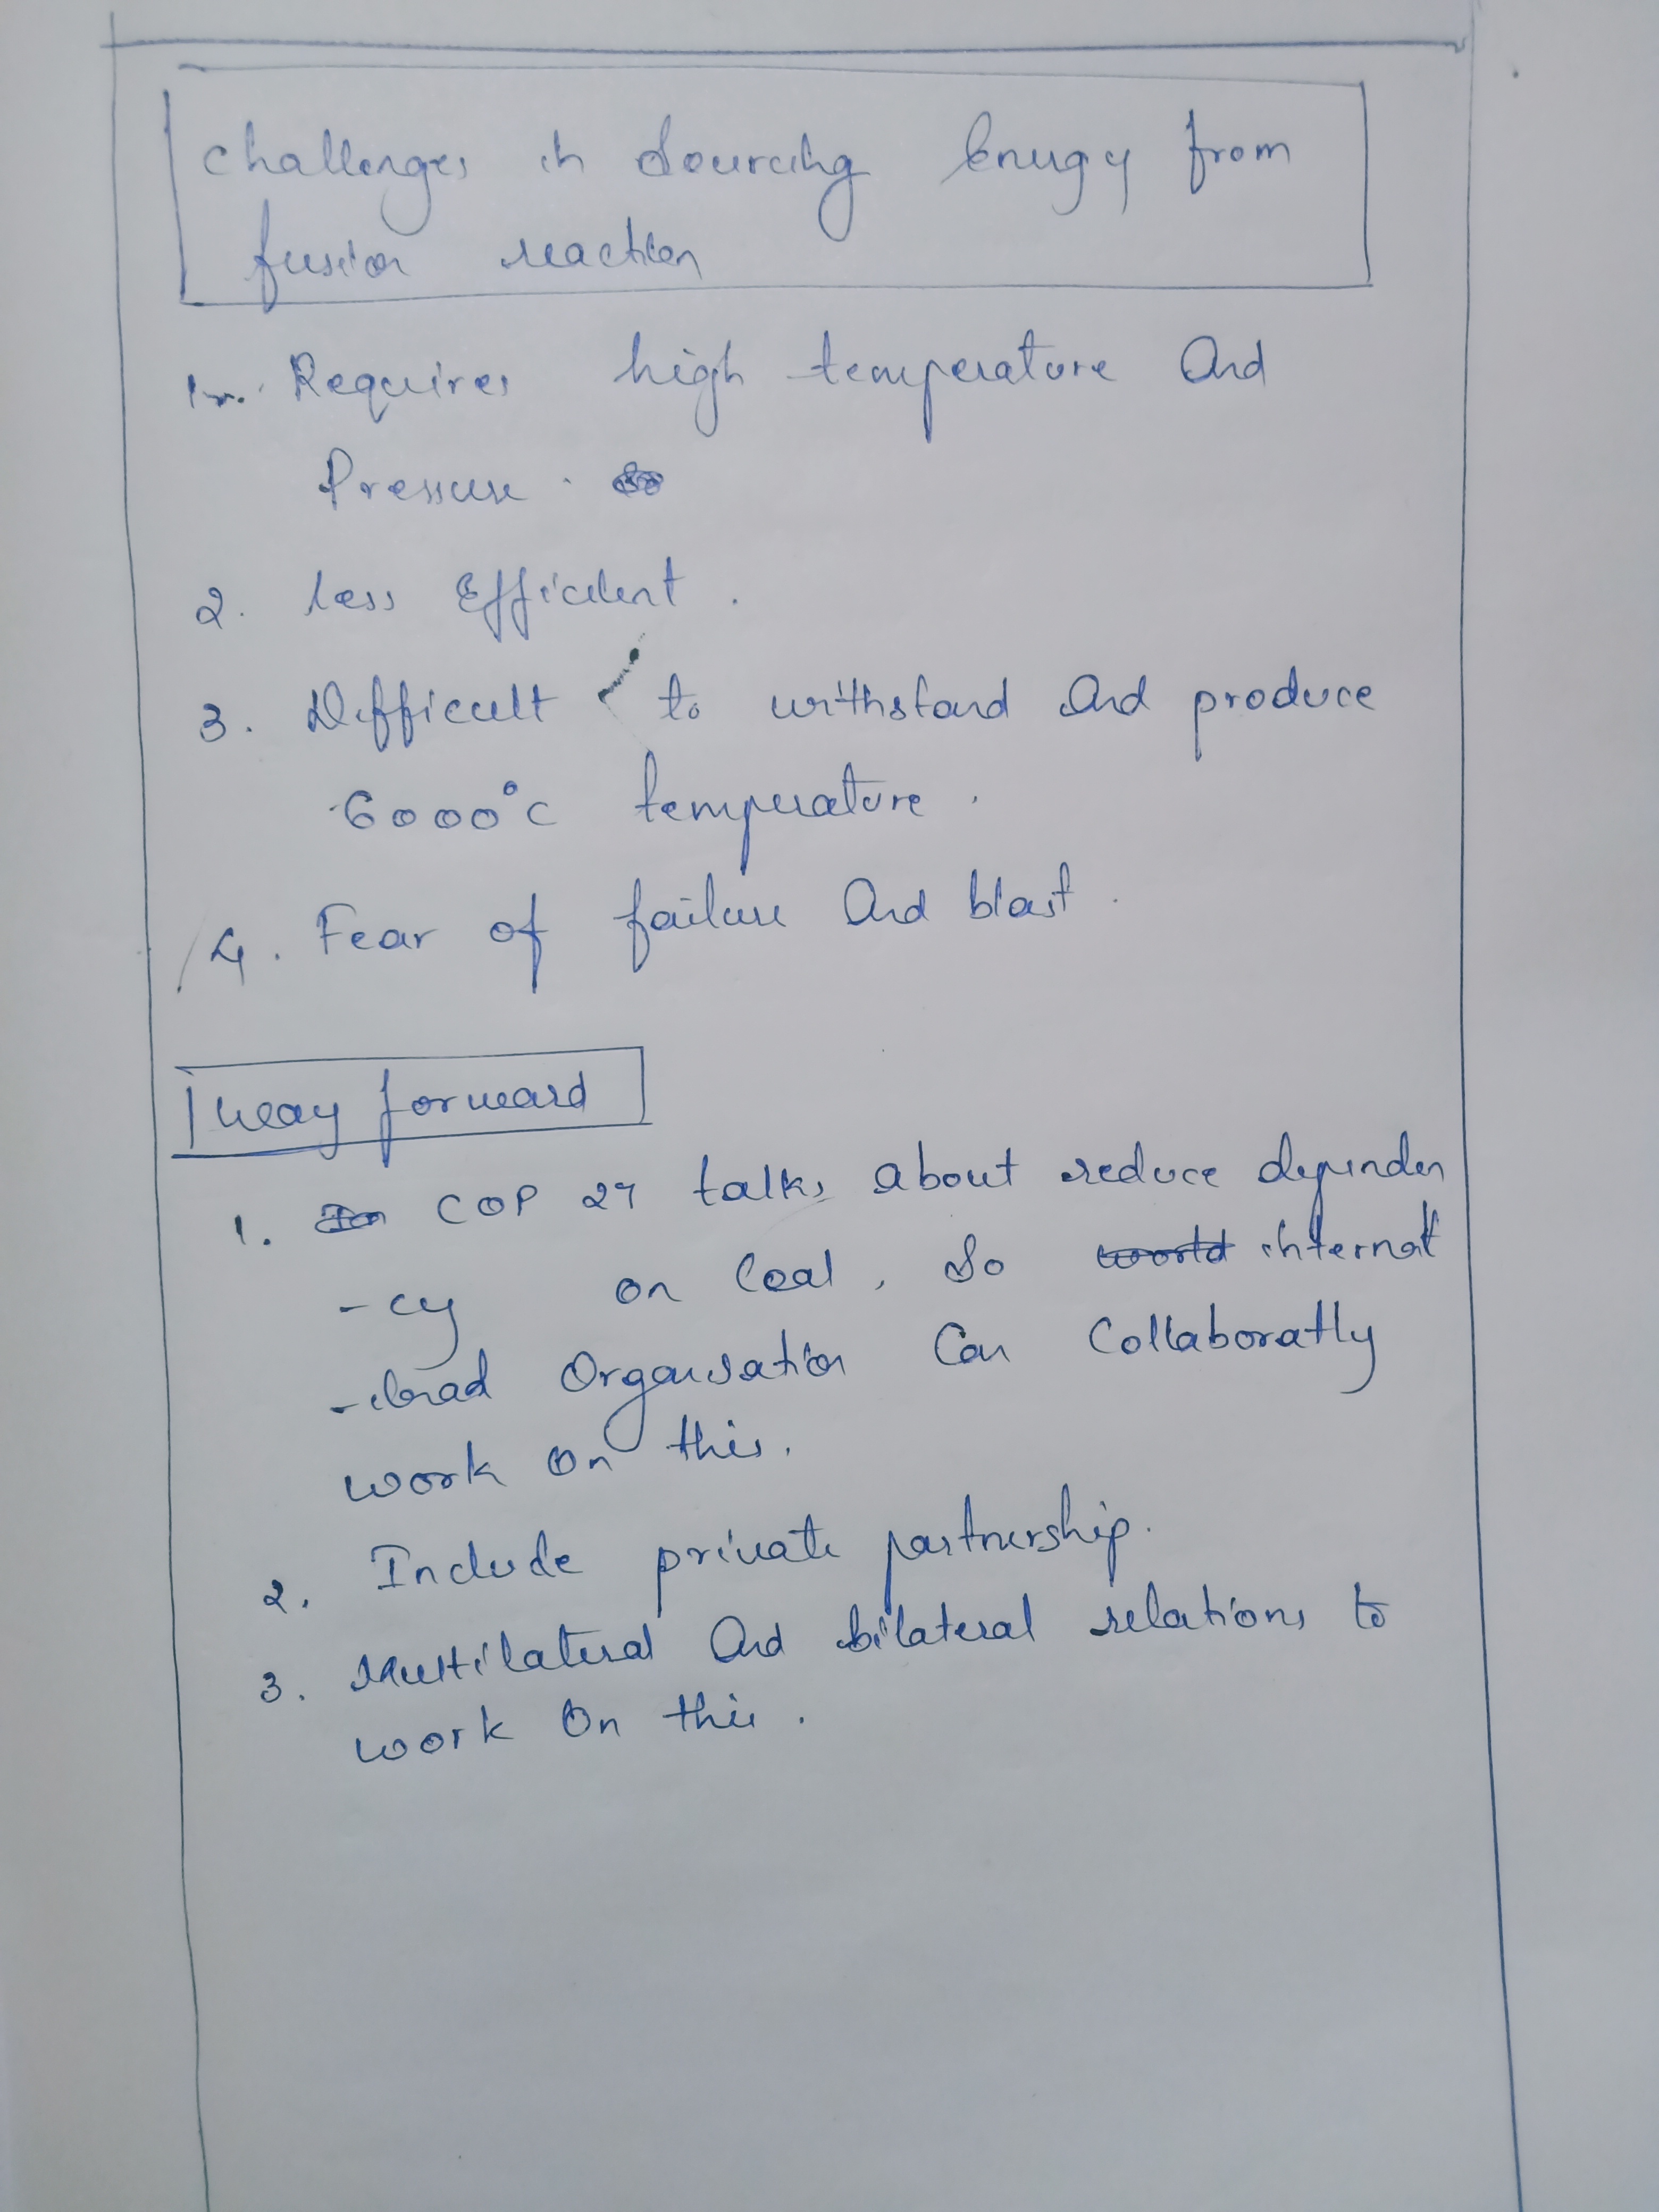 Challenges in Sourcing Energy from
fusion reaction
1. Requires high temperature And
Pressure.
2. Less Efficient.
3. Difficult to withstand And produce
6000°C temperature.
4. Fear of failure And blast.
Way forward
1. COP 27 talks about reduce dependen
-cy on Coal, So world internat
-ional Organisation Can Collaboratly
work On this.
2. Include private partnership.
3. Multilateral And bilateral relations to
work On this.